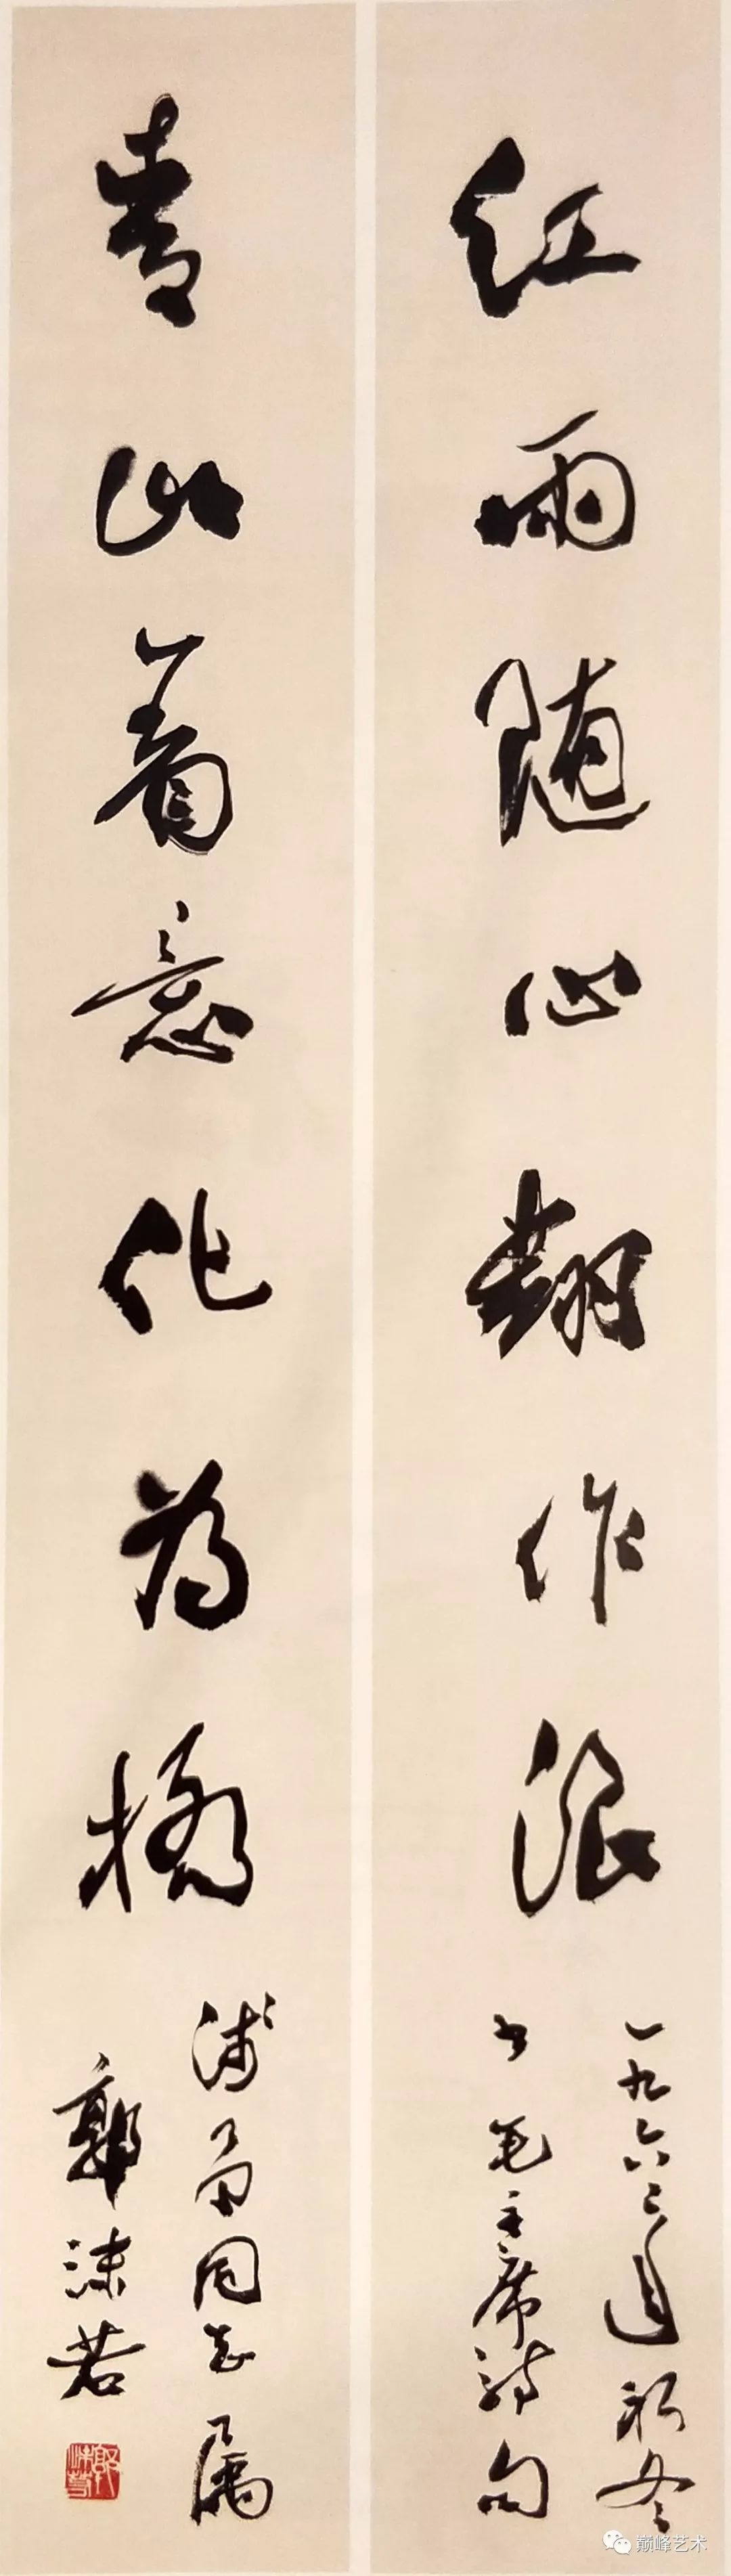 红雨随心翻作浪
一九六二年初冬
书毛主席詩句
青山着意化为橋
同志属
郭沫若
郭沫若
巅峰艺术